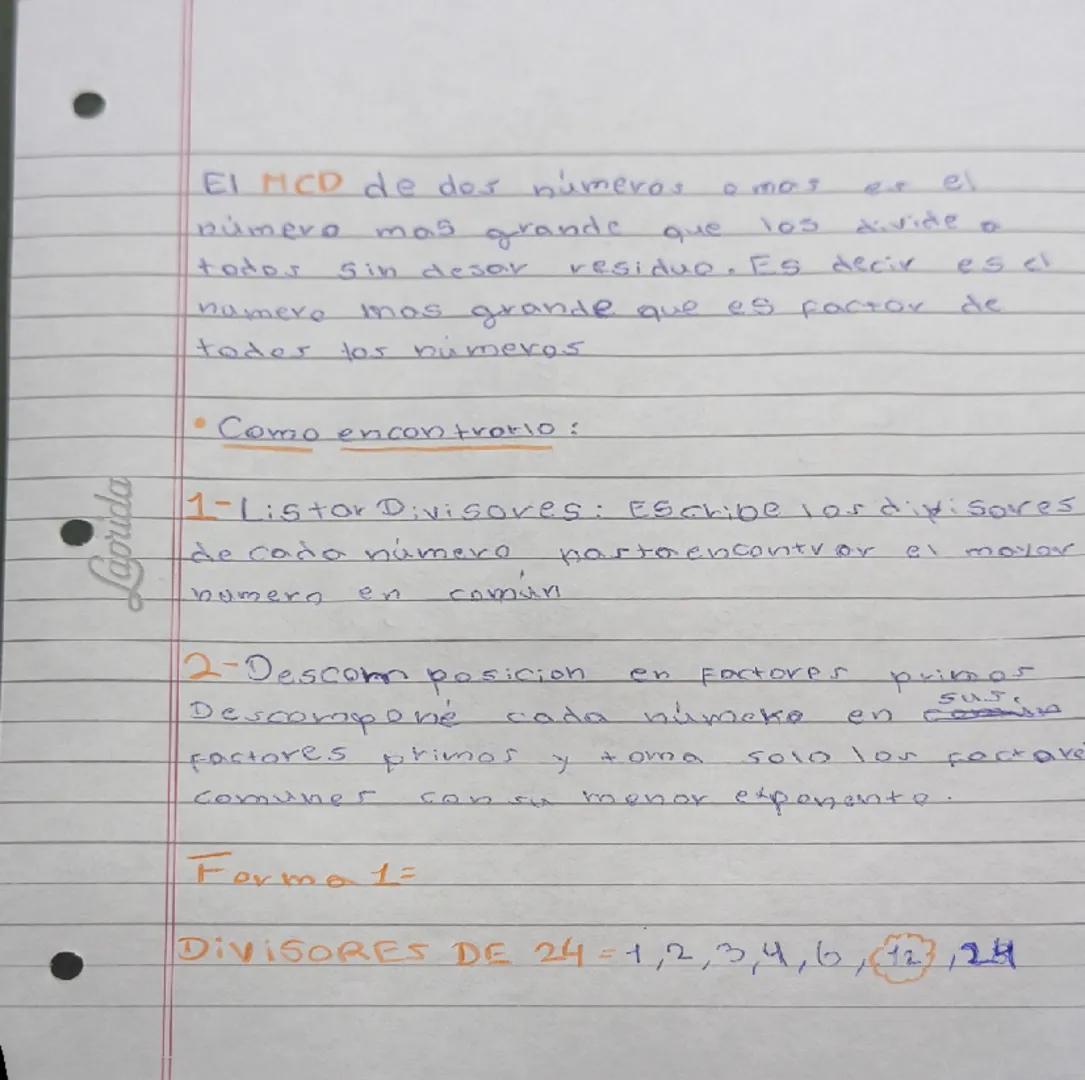 El MCD de dos números o mas es el
número mas grande que los divide a
todos sin desar residuo. Es decir es el
numero mas grande que es factor de
todos los números
• Como encontrarlo:
1-Listar Divisores: Escribe los divisores
de cada número hasta encontrar el mayor
numero en común
2-Descomposicion en Factores primos
Descomponé cada número en sus
factores primos y toma solo los factore
comunes con su menor exponente.
Forma 1=
DIVISORES DE 24 = 1,2,3,4,6,12,24
Laprida